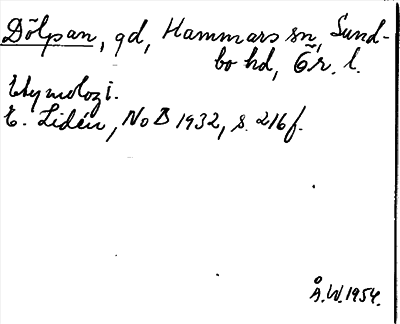 Dölpan, gd, Hammars sn, Sund-
bo hd, Ör. l.
Etymologi.
E. Lidén, NoB 1932, s. 216f.
Å.W. 1954.